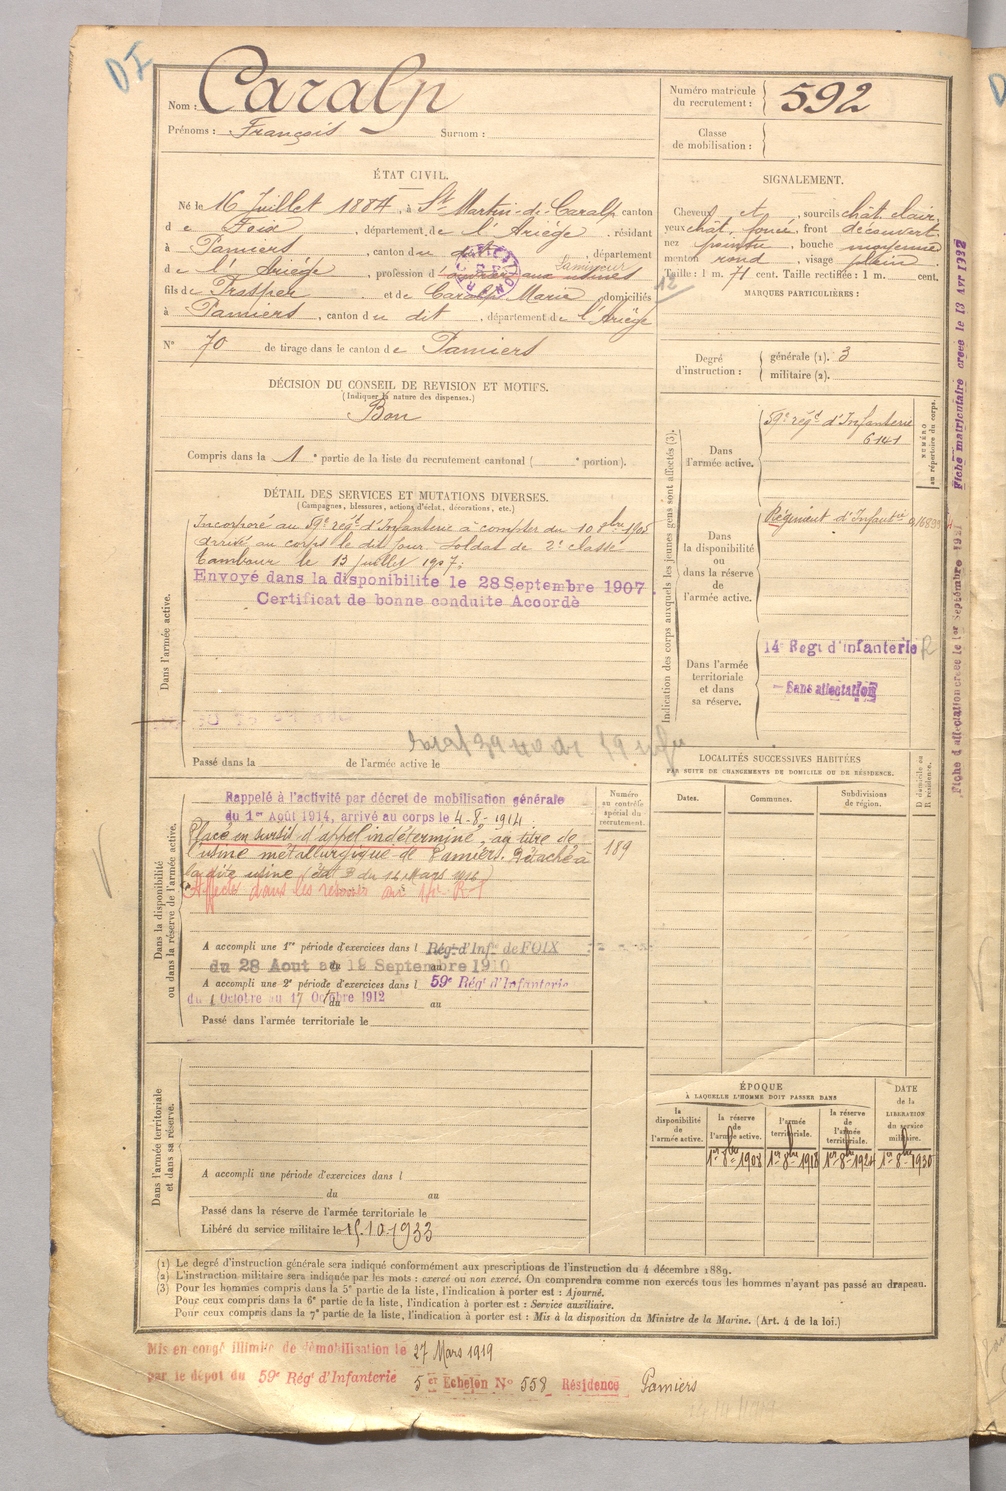 DI
Nom : Caralp
Prénoms : François Surnom :
Numéro matricule
du recrutement : 592
Classe
de mobilisation :
ÉTAT CIVIL.
Né le 16 Juillet 1884, à St Martin-de-Caralp canton
de Foix, département de l'Ariège, résidant
à Pamiers, canton du dit, département
de l'Ariège, profession d'ouvrier aux usines
Lamineur
fils de Prosper et de Caralp Marie domiciliés
à Pamiers, canton du dit, département de l'Ariège
N° 70 de tirage dans le canton de Pamiers
SIGNALEMENT.
Cheveux et, sourcils chât clair,
yeux chât. foncé, front découvert
nez pointu, bouche moyenne
menton rond, visage plein
Taille : 1 m. 71 cent. Taille rectifiée : 1 m. cent.
MARQUES PARTICULIÈRES :
12
Degré
d'instruction :
générale (1). 3
militaire (2).
DÉCISION DU CONSEIL DE REVISION ET MOTIFS.
(Indiquer la nature des dispenses.)
Bon
Compris dans la 1e partie de la liste du recrutement cantonal ( e portion).
DÉTAIL DES SERVICES ET MUTATIONS DIVERSES.
(Campagnes, blessures, actions d'éclat, décorations, etc.)
Dans l'armée active.
Incorporé au 59e régt d'Infanterie à compter du 10 8bre 1905
Arrivé au corps le dit jour. Soldat de 2e classe
Tambour le 13 juillet 1907.
Envoyé dans la disponibilité le 28 Septembre 1907
Certificat de bonne conduite Accordé
Passé dans la de l'armée active le
Indication des corps auxquels les jeunes gens sont affectés (3).
Dans
l'armée active.
59e régt d'Infanterie
6141
NUMÉRO
au répertoire du corps.
Dans
la disponibilité
ou
dans la réserve
de
l'armée active.
Régiment d'Infantie
Dans l'armée
territoriale
et dans
sa réserve.
14e Regt d'infanterie R
Sans affectation
Fiche matriculaire creee le 13 Avr 1932
Fiche d'affectation creee le 1er Septembre
Dans la disponibilité
ou dans la réserve de l'armée active.
Rappelé à l'activité par décret de mobilisation générale
du 1er Août 1914, arrivé au corps le 4-8-1914.
Placé en sursis d'appel indéterminé, au titre de
l'usine métallurgique de Pamiers. Détaché à
la dite usine du 14 Mars 1916)
Affecté dans les réserves au R I
Numéro
au contrôle
spécial du
recrutement.
189
A accompli une 1re période d'exercices dans l Rég. d'Inf. de FOIX
du 28 Aout au 19 Septembre 1910
A accompli une 2e période d'exercices dans l 59e Régt d'Infanterie
du 1 Octobre au 17 Octobre 1912 au
Passé dans l'armée territoriale le
LOCALITÉS SUCCESSIVES HABITÉES
PAR SUITE DE CHANGEMENTS DE DOMICILE OU DE RÉSIDENCE.
Dates. Communes. Subdivisions
de région.
D domicile ou
R résidence.
Dans l'armée territoriale
et dans sa réserve.
A accompli une période d'exercices dans l
du au
Passé dans la réserve de l'armée territoriale le
Libéré du service militaire le 15.10.1933
ÉPOQUE
À LAQUELLE L'HOMME DOIT PASSER DANS
la
disponibilité
de
l'armée active.
la réserve
de
l'armée active.
l'armée
territoriale.
la réserve
de
l'armée
territoriale.
DATE
de la
LIBÉRATION
du service
militaire.
1er 8bre 1908 1er 8bre 1918 1er 8bre 1924 1er 8bre 1930
(1) Le degré d'instruction générale sera indiqué conformément aux prescriptions de l'instruction du 4 décembre 1889.
(2) L'instruction militaire sera indiquée par les mots : exercé ou non exercé. On comprendra comme non exercés tous les hommes n'ayant pas passé au drapeau.
(3) Pour les hommes compris dans la 5e partie de la liste, l'indication à porter est : Ajourné.
Pour ceux compris dans la 6e partie de la liste, l'indication à porter est : Service auxiliaire.
Pour ceux compris dans la 7e partie de la liste, l'indication à porter est : Mis à la disposition du Ministre de la Marine. (Art. 4 de la loi.)
Mis en congé illimité de démobilisation le 27 Mars 1919
par le dépot du 59e Régt d'Infanterie 5e Echelon N° 558 Résidence Pamiers